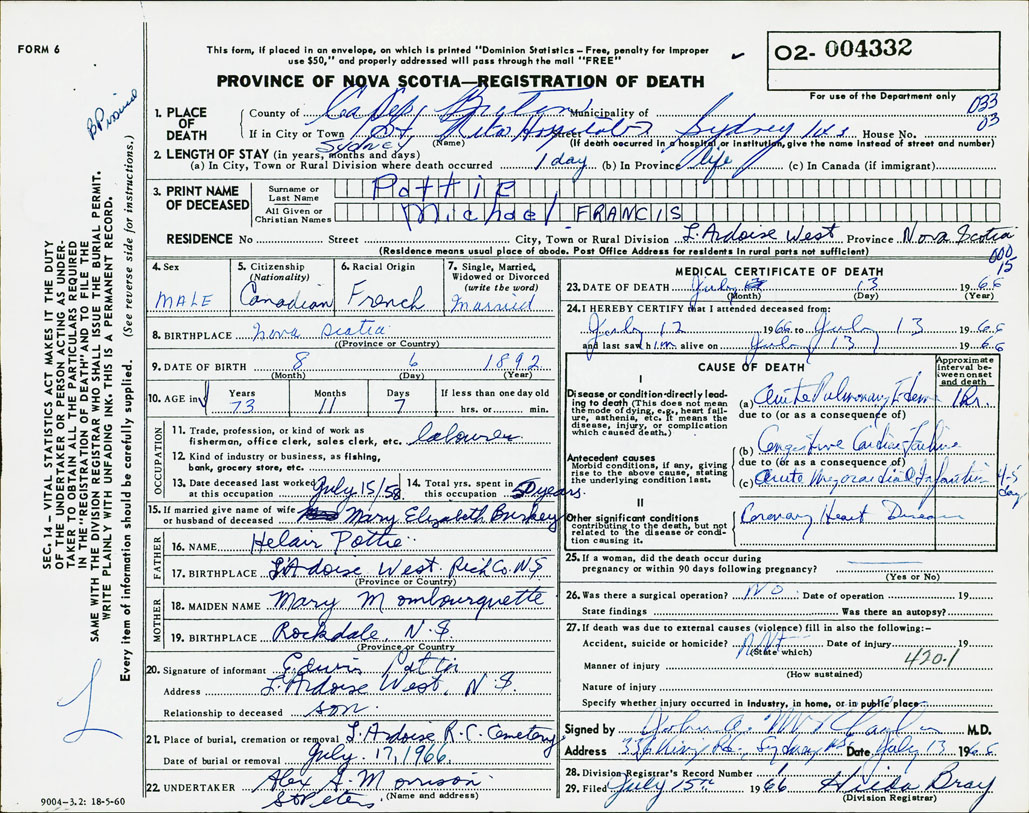 FORM 6
This form, if placed in an envelope, on which is printed "Dominion Statistics – Free, penalty for improper
use $50," and properly addressed will pass through the mail "FREE"
O2- 004332
PROVINCE OF NOVA SCOTIA—REGISTRATION OF DEATH
For use of the Department only
033
03
1. PLACE OF DEATH
County of Cape Breton Municipality of
If in City or Town St Rita Hospital Sydney N.S House No.
Sydney (Name) (If death occurred in a hospital or institution, give the name instead of street and number)
2. LENGTH OF STAY (in years, months and days)
(a) In City, Town or Rural Division where death occurred 1 day (b) In Province life (c) In Canada (if immigrant)
3. PRINT NAME OF DECEASED
Surname or Last Name Pottie
All Given or Christian Names Michael FRANCIS
RESIDENCE No Street City, Town or Rural Division L'Ardoise West Province Nova Scotia
(Residence means usual place of abode. Post Office Address for residents in rural parts not sufficient)
000
15
4. Sex MALE
5. Citizenship (Nationality) Canadian
6. Racial Origin French
7. Single, Married, Widowed or Divorced (write the word) Married
8. BIRTHPLACE Nova Scotia
(Province or Country)
9. DATE OF BIRTH 8 6 1892
(Month) (Day) (Year)
10. AGE in Years 73 Months 11 Days 7 If less than one day old hrs. or min.
OCCUPATION
11. Trade, profession, or kind of work as
fisherman, office clerk, sales clerk, etc. labourer
12. Kind of industry or business, as fishing,
bank, grocery store, etc.
13. Date deceased last worked at this occupation July 15/58
14. Total yrs. spent in this occupation 50 years
15. If married give name of wife or husband of deceased Mary Elizabeth
FATHER
16. NAME Helair Pottie
17. BIRTHPLACE L'Ardoise West Rich Co. N.S
(Province or Country)
MOTHER
18. MAIDEN NAME Mary Mombourquette
19. BIRTHPLACE Rockdale, N.S.
(Province or Country)
20. Signature of informant Edwin Pottie
Address L'Ardoise West, N.S.
Relationship to deceased son
21. Place of burial, cremation or removal L'Ardoise R.C. Cemetery
Date of burial or removal July 17, 1966
22. UNDERTAKER Alex J. Morrison
St Peters (Name and address)
9004–3.2: 18-5-60
MEDICAL CERTIFICATE OF DEATH
23. DATE OF DEATH July 13 1966
(Month) (Day) (Year)
24. I HEREBY CERTIFY that I attended deceased from:
July 12 1966 to July 13 1966
and last saw him alive on July 13 1966
CAUSE OF DEATH
Approximate interval between onset and death
I
Disease or condition directly leading to death (This does not mean the mode of dying, e.g., heart failure, asthenia, etc. It means the disease, injury, or complication which caused death.)
(a) Acute Pulmonary Edema 1 hr.
due to (or as a consequence of)
Antecedent causes
Morbid conditions, if any, giving rise to the above cause, stating the underlying condition last.
(b) Congestive Cardiac Failure
due to (or as a consequence of)
(c) Acute Myocardial Infarction 4-5 days
II
Other significant conditions
contributing to the death, but not related to the disease or condition causing it.
Coronary Heart Disease
25. If a woman, did the death occur during
pregnancy or within 90 days following pregnancy?
(Yes or No)
26. Was there a surgical operation? NO Date of operation 19
State findings Was there an autopsy?
27. If death was due to external causes (violence) fill in also the following:–
Accident, suicide or homicide? Date of injury 19
(State which) 420.1
Manner of injury
(How sustained)
Nature of injury
Specify whether injury occurred in industry, in home, or in public place
Signed by M.D.
Address Sydney Date July 13 1966
28. Division Registrar's Record Number
29. Filed July 15th 1966 Hilda Bray
(Division Registrar)
SEC. 14 – VITAL STATISTICS ACT MAKES IT THE DUTY
OF THE UNDERTAKER OR PERSON ACTING AS UNDER-
TAKER TO OBTAIN ALL THE PARTICULARS REQUIRED
IN THE "REGISTRATION OF DEATH" AND TO FILE THE
SAME WITH THE DIVISION REGISTRAR WHO SHALL ISSUE THE BURIAL PERMIT.
WRITE PLAINLY WITH UNFADING INK. THIS IS A PERMANENT RECORD.
Every item of information should be carefully supplied. (See reverse side for instructions.)